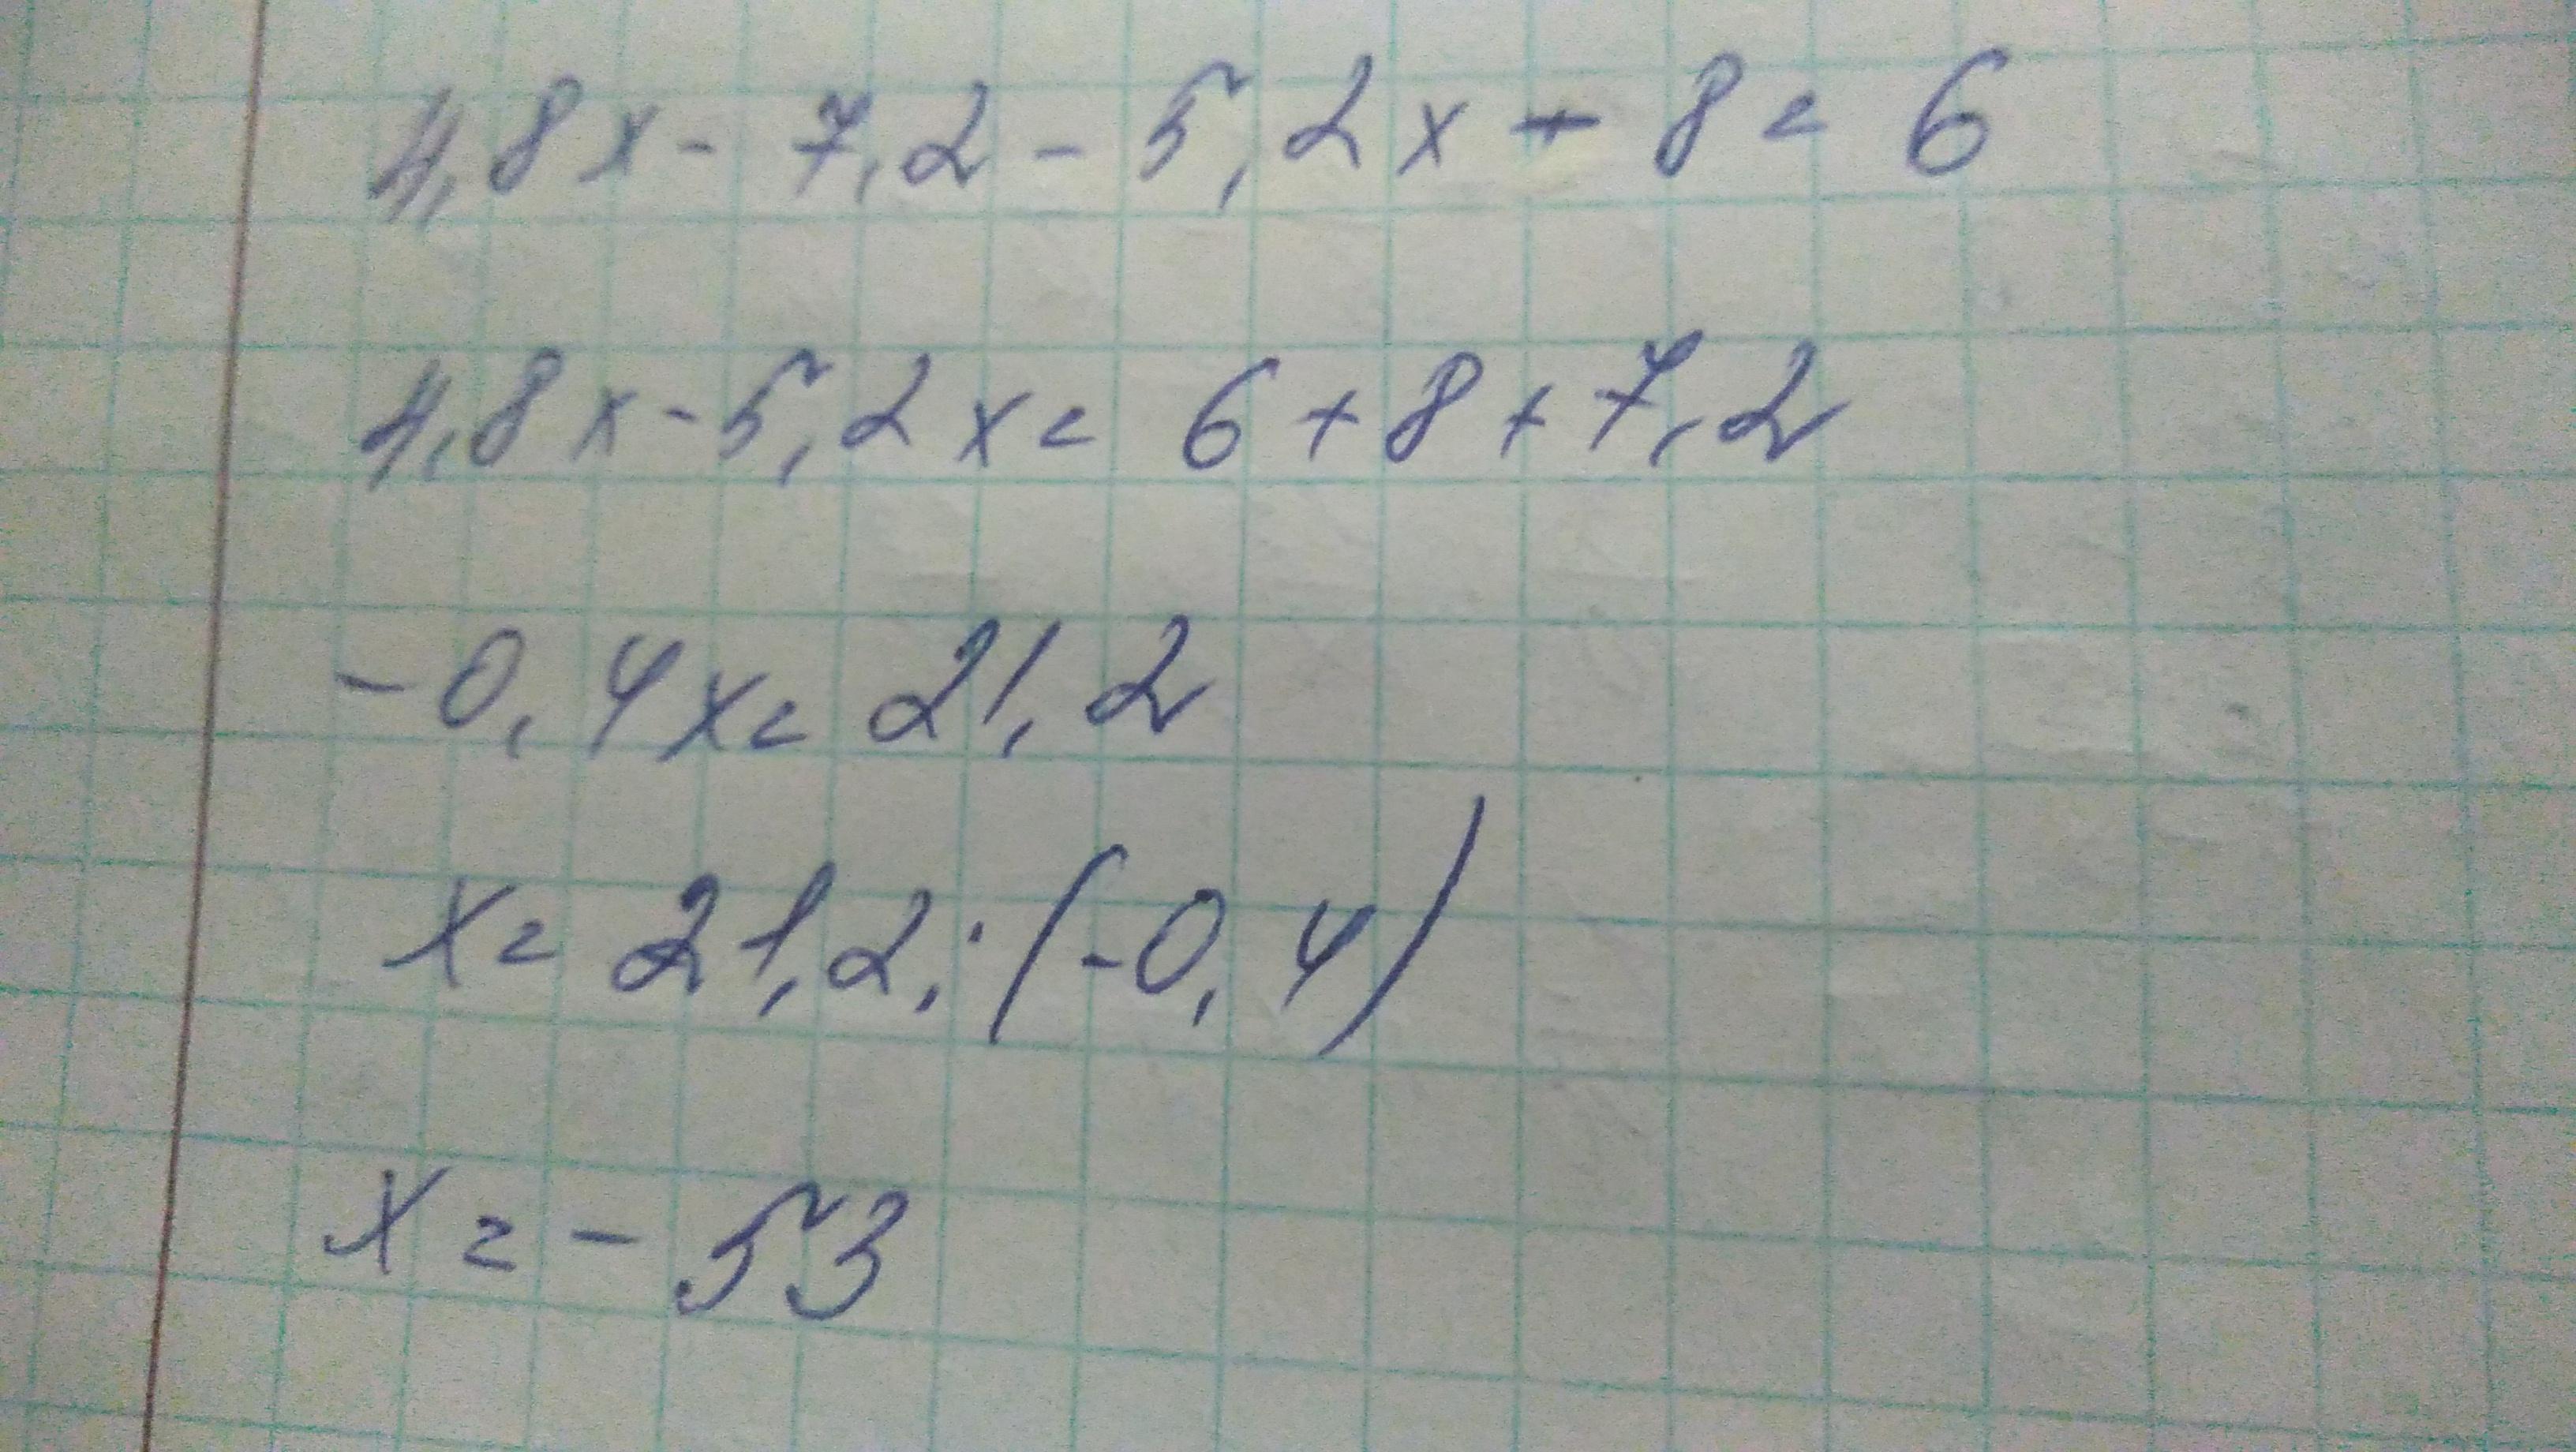 4,8x - 7,2 - 5,2x - 8 = 6
4,8x - 5,2x = 6 + 8 + 7,2
-0,4x = 21,2
x = 21,2 : (-0,4)
x = - 53